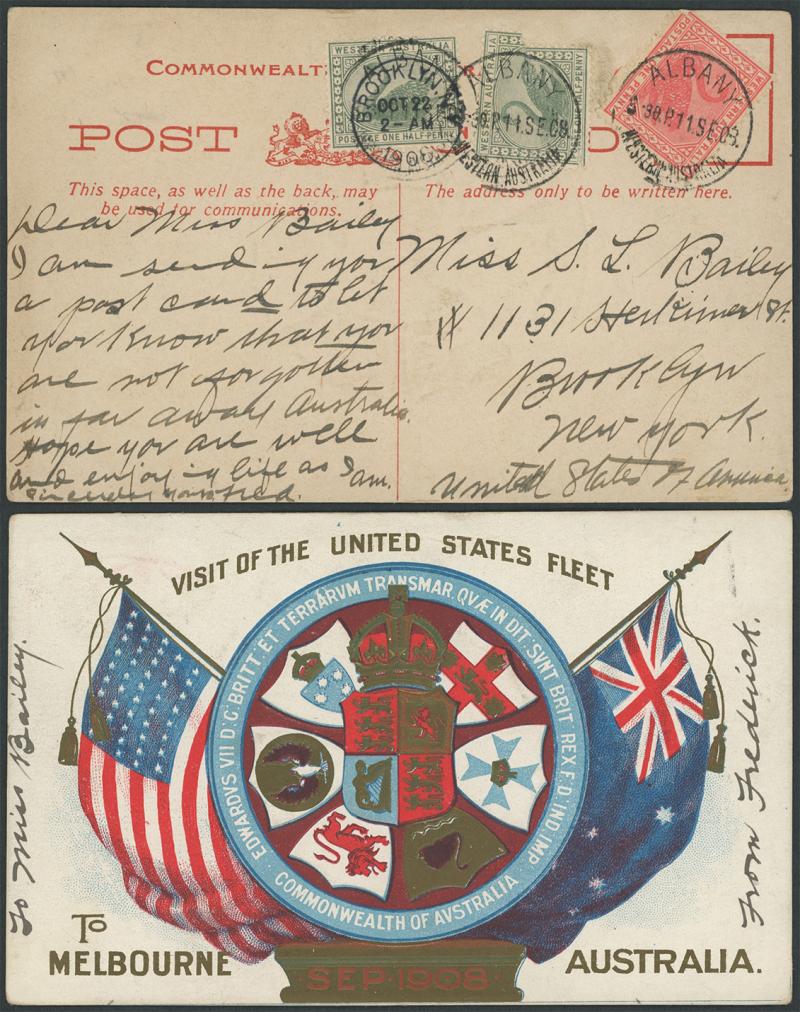 COMMONWEALT
POST
D
WESTERN AUSTRALIA
POSTAGE ONE HALF-PENNY
BROOKLYN, N.Y.
OCT 22
2-AM
1908
WESTERN AUSTRALIA
HALF-PENNY
ALBANY
5-30.P.11.SE.08
WESTERN AUSTRALIA
ALBANY
5-30.P.11.SE.08.
WESTERN AUSTRALIA
This space, as well as the back, may
be used for communications.
The address only to be written here.
Dear Miss Bailey
I am sending you
a post card to let
you know that you
are not forgotten
in far away Australia.
Hope you are well
and enjoying life as I am.
Sincerely yours Fred.
Miss S. L. Bailey
# 1131 Herkimer St.
Brooklyn
New York.
United States of America
VISIT OF THE UNITED STATES FLEET
EDWARDVS VII D: G: BRITT: ET TERRARVM TRANSMAR. QVÆ IN DIT: SVNT BRIT REX F: D: IND: IMP
COMMONWEALTH OF AVSTRALIA
To Miss Bailey.
From Frederick.
TO
MELBOURNE
AUSTRALIA.
SEP·1908